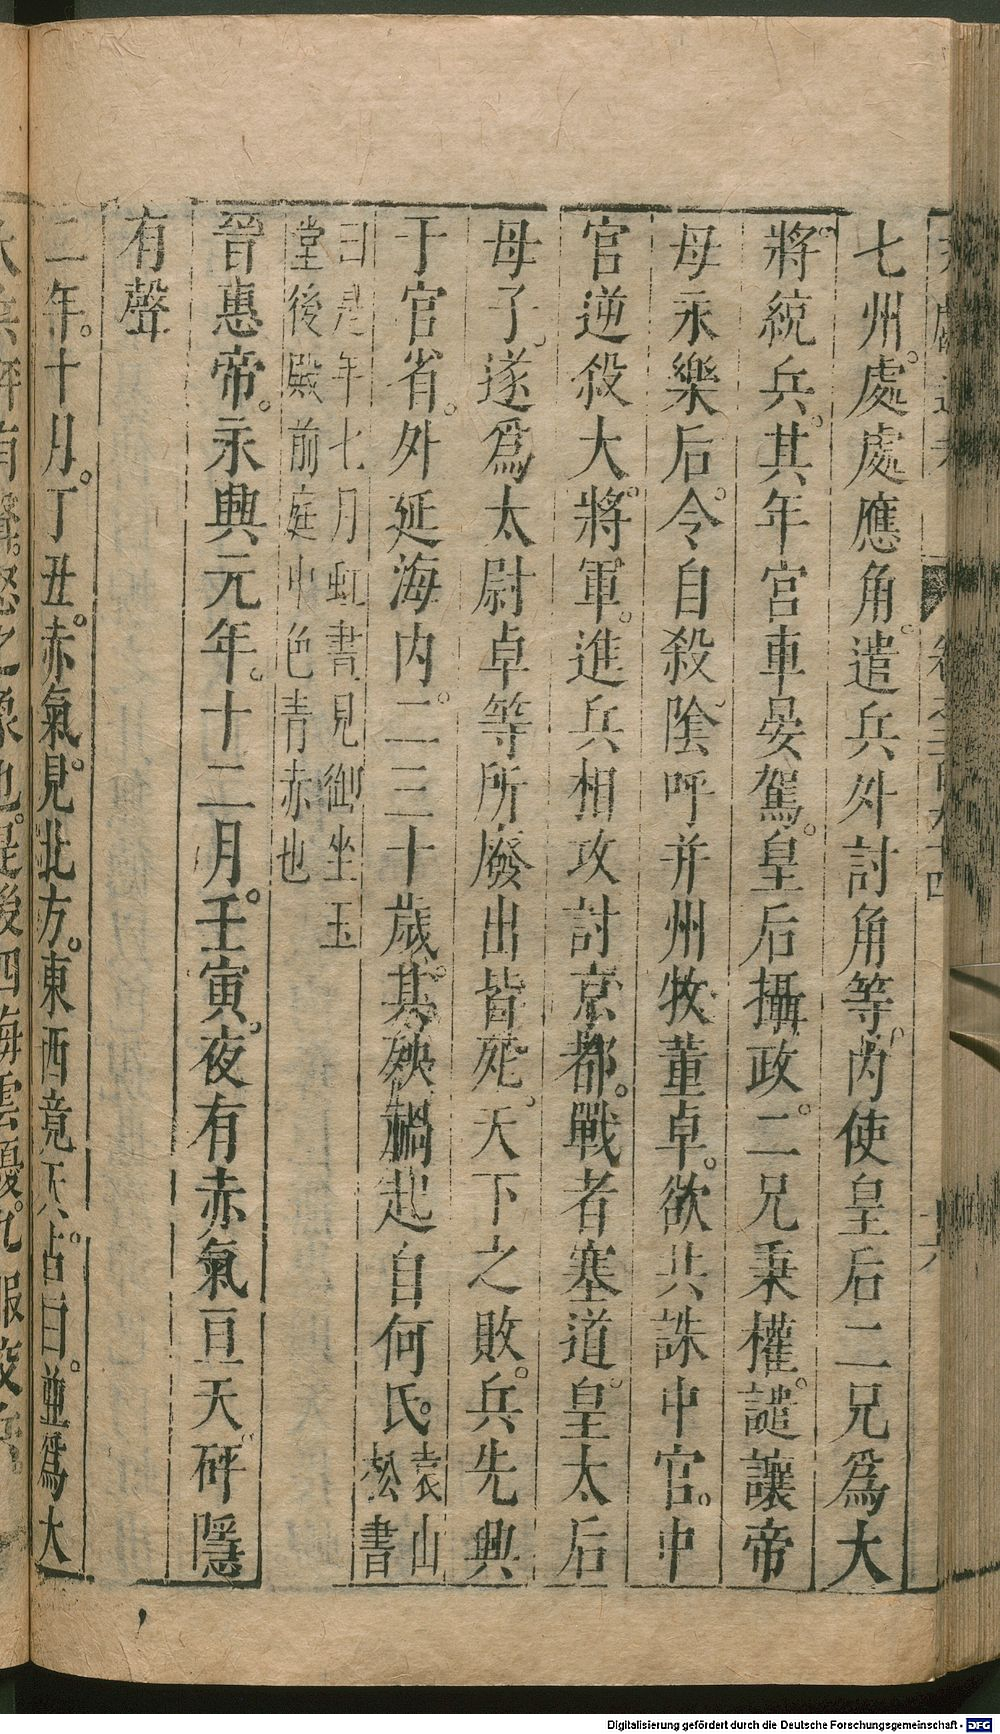 七州。處處應角。遣兵外討角等。內使皇后二兄爲大
將。統兵。其年宮車晏駕。皇后攝政。二兄秉權。譴讓帝
母永樂后。令自殺。陰呼并州牧董卓。欲共誅中官。中
官逆殺大將軍。進兵相攻。討京都。戰者塞道。皇太后
母子。遂爲太尉卓等所廢出皆死。天下之敗。兵先興
于官省。外延海内。二三十歲。其殃禍起自何氏。袁山
松書
曰是年七月虹晝見御坐玉
堂後殿前庭中色青赤也
晉惠帝。永興元年。十二月。壬寅。夜有赤氣亘天。砰隱
有聲
二年。十月。丁丑。赤氣見北方。東西竟天。占曰。並爲大
有聲。怒之象也。是後四海雲擾。九服
Digitalisierung gefördert durch die Deutsche Forschungsgemeinschaft - DFG